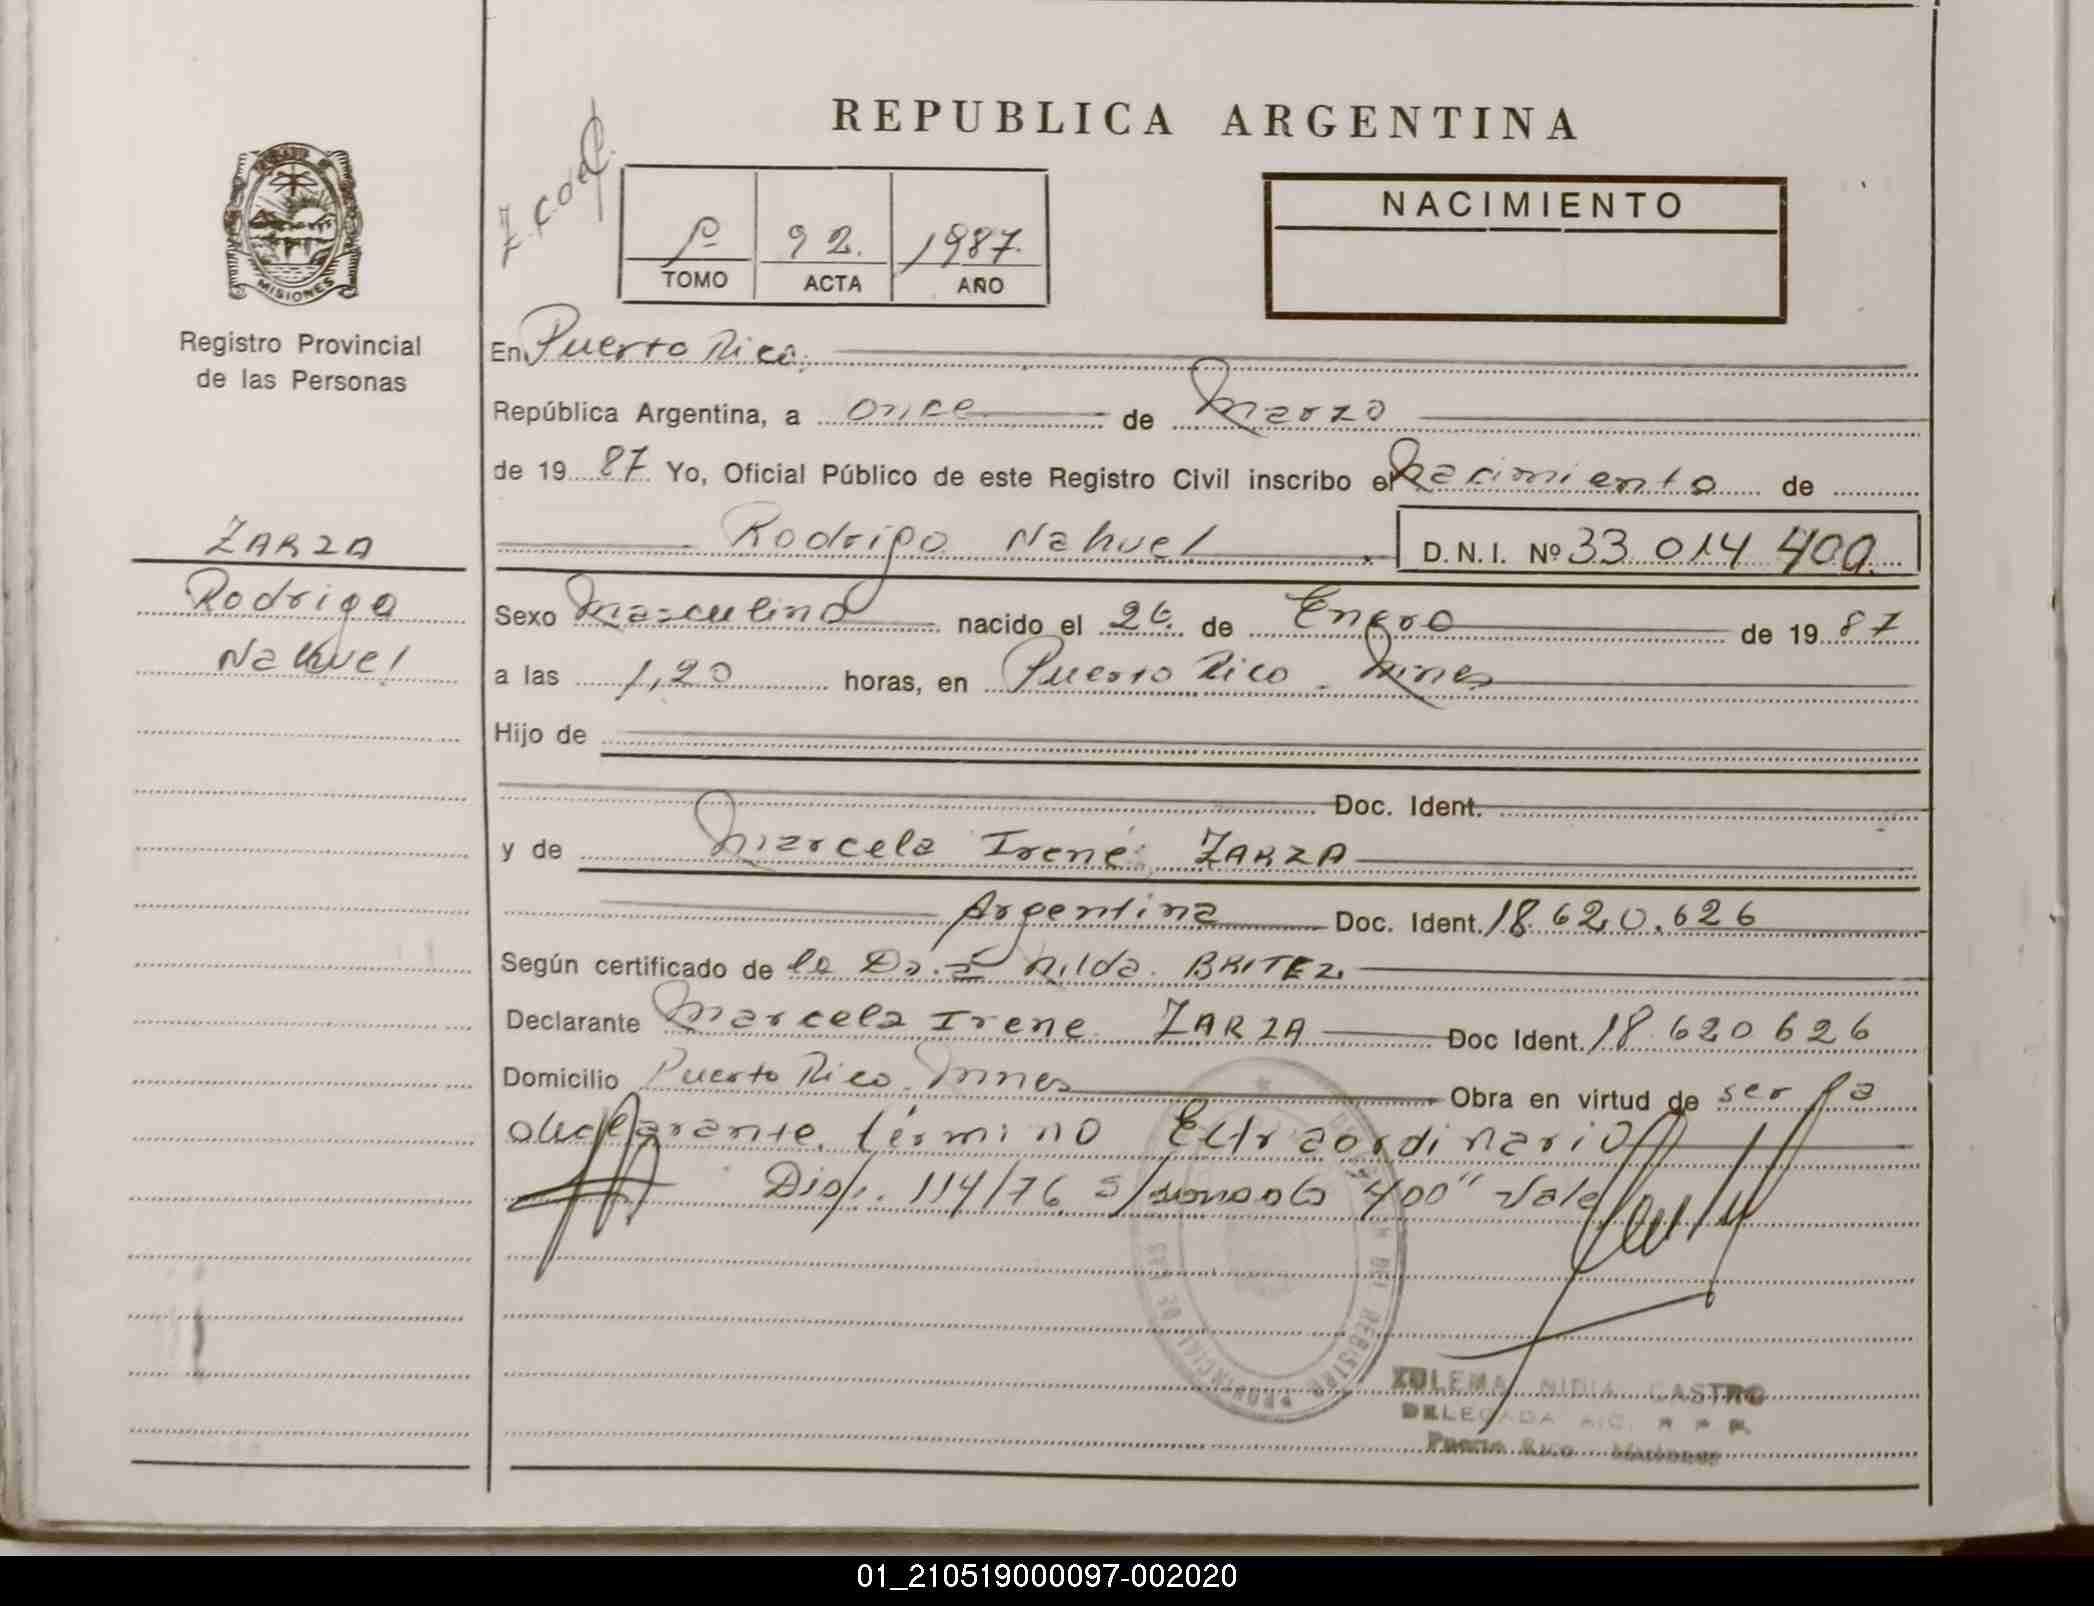 REPUBLICA ARGENTINA
MISIONES
Registro Provincial
de las Personas
1º 92. 1987.
TOMO ACTA AÑO
NACIMIENTO
ZARZA
Rodrigo
Nahuel
En Puerto Rico.
República Argentina, a once de Marzo
de 19 87 Yo, Oficial Público de este Registro Civil inscribo el Nacimiento de
Rodrigo Nahuel D.N.I. Nº 33 014 400.
Sexo Masculino nacido el 26. de Enero de 19 87
a las 1,20 horas, en Puerto Rico - Mnes
Hijo de
Doc. Ident.
y de Marcela Irene ZARZA
Argentina Doc. Ident. 18.620.626
Según certificado de la Da. Nilda BRITEZ
Declarante Marcela Irene ZARZA Doc Ident. 18.620 626
Domicilio Puerto Rico Mnes Obra en virtud de ser la
declarante. término Extraordinario
Disp. 114/76 "400" Vale
ZULEMA NIDIA CASTRO
DELEGADA
Puerto Rico Misiones
01_210519000097-002020